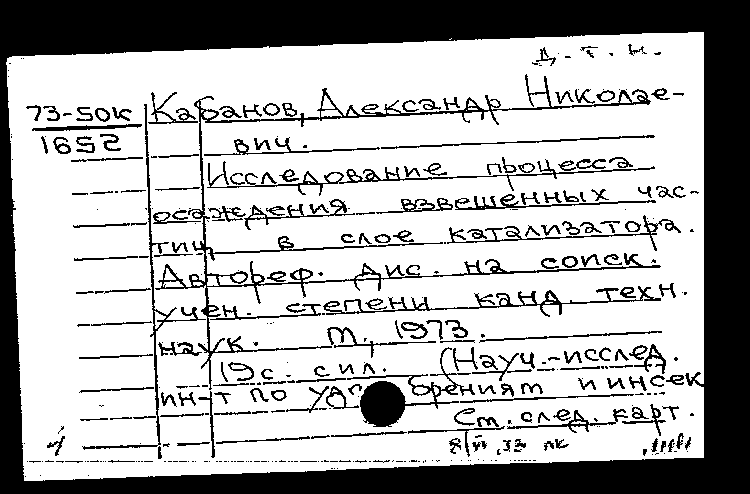 Д. т. н.
73-50к Кабанов, Александр Николае-
1652 вич.
Исследование процесса
осаждения взвешенных час-
тиц в слое катализатора.
Автореф. дис. на соиск.
учен. степени канд. техн.
наук. М., 1973.
19с. с ил. (Науч.-исслед.
ин-т по удобрениям и инсек
См. след. карт.